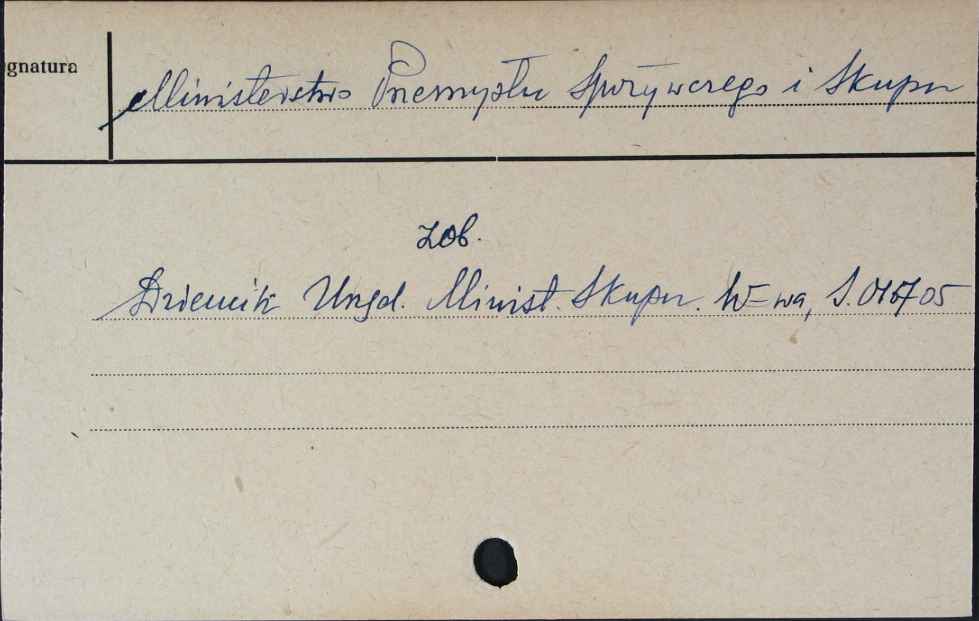 gnatura
Ministerstwo Przemysłu Spożywczego i Skupu
zob.
Dziennik Urzęd. Minist. Skupu. W-wa, S.016705